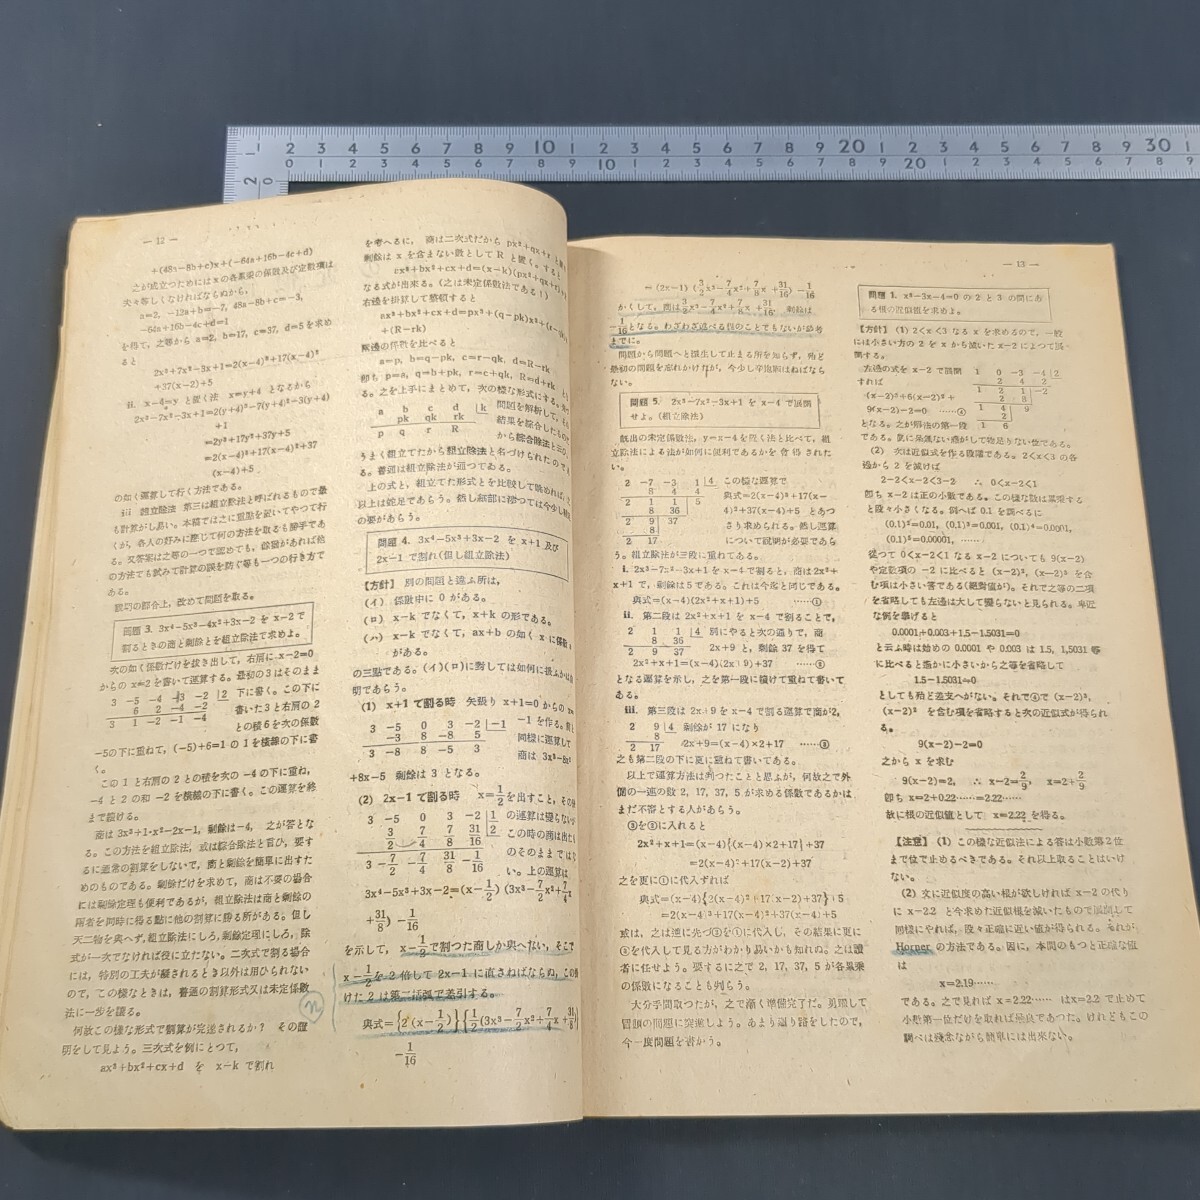 — 12 —
+(48a−8b+c)x+(−64a+16b−4c+d)
a=2, −12a+b=−7, 48a−8b+c=−3,
−64a+16b−4c+d=1
を得て，之等から a=2, b=17, c=37, d=5 を求め
ると
2x³+7x²−3x+1=2(x−4)³+17(x−4)²
+37(x−2)+5
ii. x−4=y と置く法 x=y+4 となるから
2x³−7x²−3x+1=2(y+4)³−7(y+4)²−3(y+4)
+1
=2y³+17y²+37y+5
=2(x−4)³+17(x−4)²+37
(x−4)+5
の如く運算して行く方法である。
ある。
問題 3. 3x⁴−5x³−4x²+3x−2 を x−2 で
割るときの商と剰餘とを組立除法で求めよ。
次の如く係数だけを抜き出して，右肩に x−2=0
からの x=2 を書いて運算する。最初の3はそのまま
3 −5 −4 +3 −2 |2 下に書く。この下に
6 2 −4 −2 書いた3と右肩の2
3 1 −2 −1 −4 との積6を次の係数
−5の下に重ねて，(−5)+6=1 の 1 を横線の下に書
く。
この 1 と右肩の 2 との積を次の −4 の下に重ね，
−4 と 2 の和 −2 を横線の下に書く。この運算を終
まで続ける。
商は 3x³+1·x²−2x−1，剰餘は−4， 之が答とな
る。この方法を組立除法，或は綜合除法と言ひ，要す
るに通常の割算をしないで，商と剰餘を簡単に出すた
めのものである。剰餘だけを求めて，商は不要の場合
には剰餘定理も便利であるが，組立除法は商と剰餘の
両者を同時に得る點に他の割算に勝る所がある。但し
天二物を與へず，組立除法にしろ，剰餘定理にしろ，除
式が一次でなければ役に立たない。二次式で割る場合
には，特別の工夫が凝されるとき以外は用ひられない
ので，この様なときは，普通の割算形式又は未定係数
法に一歩を譲る。
何故この様な形式で割算が完遂されるか？ その證
明をして見よう。三次式を例にとつて，
ax³+bx²+cx+d を x−k で割れ
なる式が出來る。（之は未定係數法である！）
右邊を掛算して整頓すると
+(R−rk)
兩邊の係數を比べると
a=p, b=q−pk, c=r−qk, d=R−rk
即ち p=a, q=b+pk, r=c+qk, R=d+rk
る。之を上手にまとめて，次の様な形式にする。
a b c d |k 問題を解析して，
pk qk rk 結果を綜合したもの
p q r R から綜合除法と
うまく組立てたから組立除法と名づけられたの
る。普通は組立除法が通つてゐる。
上の式と，組立てた形式とを比較して眺めれば，
の要があらう。
問題 4. 3x⁴−5x³+3x−2 を x+1 及び
2x−1 で割れ（但し組立除法）
〔方針〕 別の問題と違ふ所は，
（イ） 係數中に 0 がある。
（ロ） x−k でなくて，x+k の形である。
（ハ） x−k でなくて，ax+b の如く x に係數
がある。
の三點である。（イ）（ロ）に對しては如何に扱ふかは
明であらう。
(1) x+1 で割る時 矢張り x+1=0 からの
3 −5 0 3 −2 |−1 −1 を作る。
−3 8 −8 5 同様に運算して
3 −8 8 −5 3 商は 3x³−8x²
+8x−5 剰餘は 3 となる。
(2) 2x−1 で割る時 x=1/2 を出すこと，
3 −5 0 3 −2 |1/2 の運算は變らない
3/2 −7/4 −7/8 31/16 この時の商は出た
3 −7/2 −7/4 31/8 −1/16 い。上の運算は
3x⁴−5x³+3x−2=(x−1/2)(3x³−7/2x²+7/4x
+31/8) −1/16
を示して，x−1/2で割つた商しか與へない，そこで
x−1/2を 2 倍して 2x−1 に直さねばならぬ，この
けた 2 は第二括弧で差引する。
與式={2(x−1/2)}{1/2(3x³−7/2x²+7/4x+31/8)}
−1/16
— 13 —
=(2x−1)(3/2x³−7/4x²+7/8x+31/16)−1/16
かくして，商は3/2x³−7/4x²+7/8x+31/16， 剰餘は
−1/16となる。わざわざ述べる程のことでもないが參考
までに。
ない。
問題 5. 2x³−7x²−3x+1 を x−4 で展開
せよ。（組立除法）
既出の未定係數法，y=x−4を置く法と比べて，組
立除法による法が如何に便利であるかを會得された
い。
2 −7 −3 1 |4 この様な運算で
8 4 4 與式=2(x−4)³+17(x−
2 1 1 5 4)²+37(x−4)+5 とあつ
8 36 さり求められる。然し運算
2 9 37 について説明が必要であら
8
2 17
う。組立除法が三段に重ねてある。
i. 2x³−7x²−3x+1 を x−4 で割ると，商は 2x²+
x+1 で，剰餘は 5 である。これは今迄と同じである。
與式=(x−4)(2x²+x+1)+5 ……①
ii. 第二段は 2x²+x+1 を x−4 で割ることで，
2 1 1 |4 別にやると次の通りで，商
8 36 2x+9 と，剰餘 37 を得て
2 9 37
2x²+x+1=(x−4)(2x+9)+37 ……②
となる運算を示し，之を第一段に續けて重ねて書いて
ある。
iii. 第三段は 2x+9 を x−4 で割る運算で商が2，
2 9 |4 剰餘が 17 になり
8
2 17 2x+9=(x−4)×2+17 ……③
之も第二段の下に更に重ねて書いてある。
以上で運算方法は判つたことと思ふが，何故之で外
側の一連の數 2, 17, 37, 5 が求める係數であるかは
まだ不審とする人があらう。
③を②に入れると
2x²+x+1=(x−4){(x−4)×2+17}+37
=2(x−4)²+17(x−4)+37
之を更に①に代入すれば
與式=(x−4){2(x−4)²+17(x−4)+37}+5
=2(x−4)³+17(x−4)²+37(x−4)+5
或は，之は逆に先づ②を①に代入し，その結果に更に
③を代入して見る方がわかり易いかも知れぬ。之は讀
者に任せよう。要するに之で 2, 17, 37, 5 が各累乘
の係數になることも判らう。
大分手間取つたが，之で漸く準備完了だ。勇躍して
冒頭の問題に突進しよう。あまり廻り路をしたので，
今一度問題を書かう。
問題 1. x³−3x−4=0 の 2 と 3 の間にあ
る根の近似値を求めよ。
〔方針〕 (1) 2<x<3 なる x を求めるので，一般
には小さい方の 2 を x から減いた x−2 によつて展
開する。
左邊の式を x−2 で展開 1 0 −3 −4 |2
すれば 2 4 2
(x−2)³+6(x−2)²+ 1 2 1 −2
9(x−2)−2=0 ……④ 2 8
となる。之が解法の第一段 1 4 9
2
1 6
(2) 次は近似式を作る段階である。2<x<3 の各
邊から 2 を減けば
2−2<x−2<3−2 ∴ 0<x−2<1
即ち x−2 は正の小數である。この様な數は累乘する
と段々小さくなる。例へば 0.1 を調べるに
(0.1)²=0.01, (0.1)³=0.001, (0.1)⁴=0.0001,
(0.1)⁵=0.00001, ……
從つて 0<x−2<1 なる x−2 についても 9(x−2)
や定數項の −2 に比べると (x−2)³, (x−2)² を含
む項は小さい筈である（絶對値が）。それで之等の二項
を省略しても左邊は大して變らないと見られる。卑近
な例を擧げると
0.0001+0.003+1.5−1.5031=0
と云ふ時は始めの 0.0001 や 0.003 は 1.5, 1.5031 等
に比べると遙かに小さいから之等を省略して
1.5−1.5031≒0
としても殆ど差支へがない。それで④で (x−2)³,
(x−2)² を含む項を省略すると次の近似式が得られ
る。
9(x−2)−2=0
之から x を求む
9(x−2)=2, ∴ x−2=2/9, x=2+2/9
即ち x=2+0.22……=2.22……
故に根の近似値として x=2.22 を得る。
〔注意〕 (1) この様な近似法による答は小數第2位
まで位で止めるべきである。それ以上取ることはいけ
ない。
(2) 又に近似度の高い根が欲しければ x−2 の代り
に x−2.2 と今求めた近似根を減いたもので展開して
同様にやれば，段々正確に近い値が得られる。それが
Horner の方法である。因に，本問のもつと正確な値
は
x=2.19……
である。之で見れば x=2.22…… は x=2.2 で止めて
小數第一位だけを取れば無良であつた。けれどもこの
調べは殘念ながら簡單には出來ない。